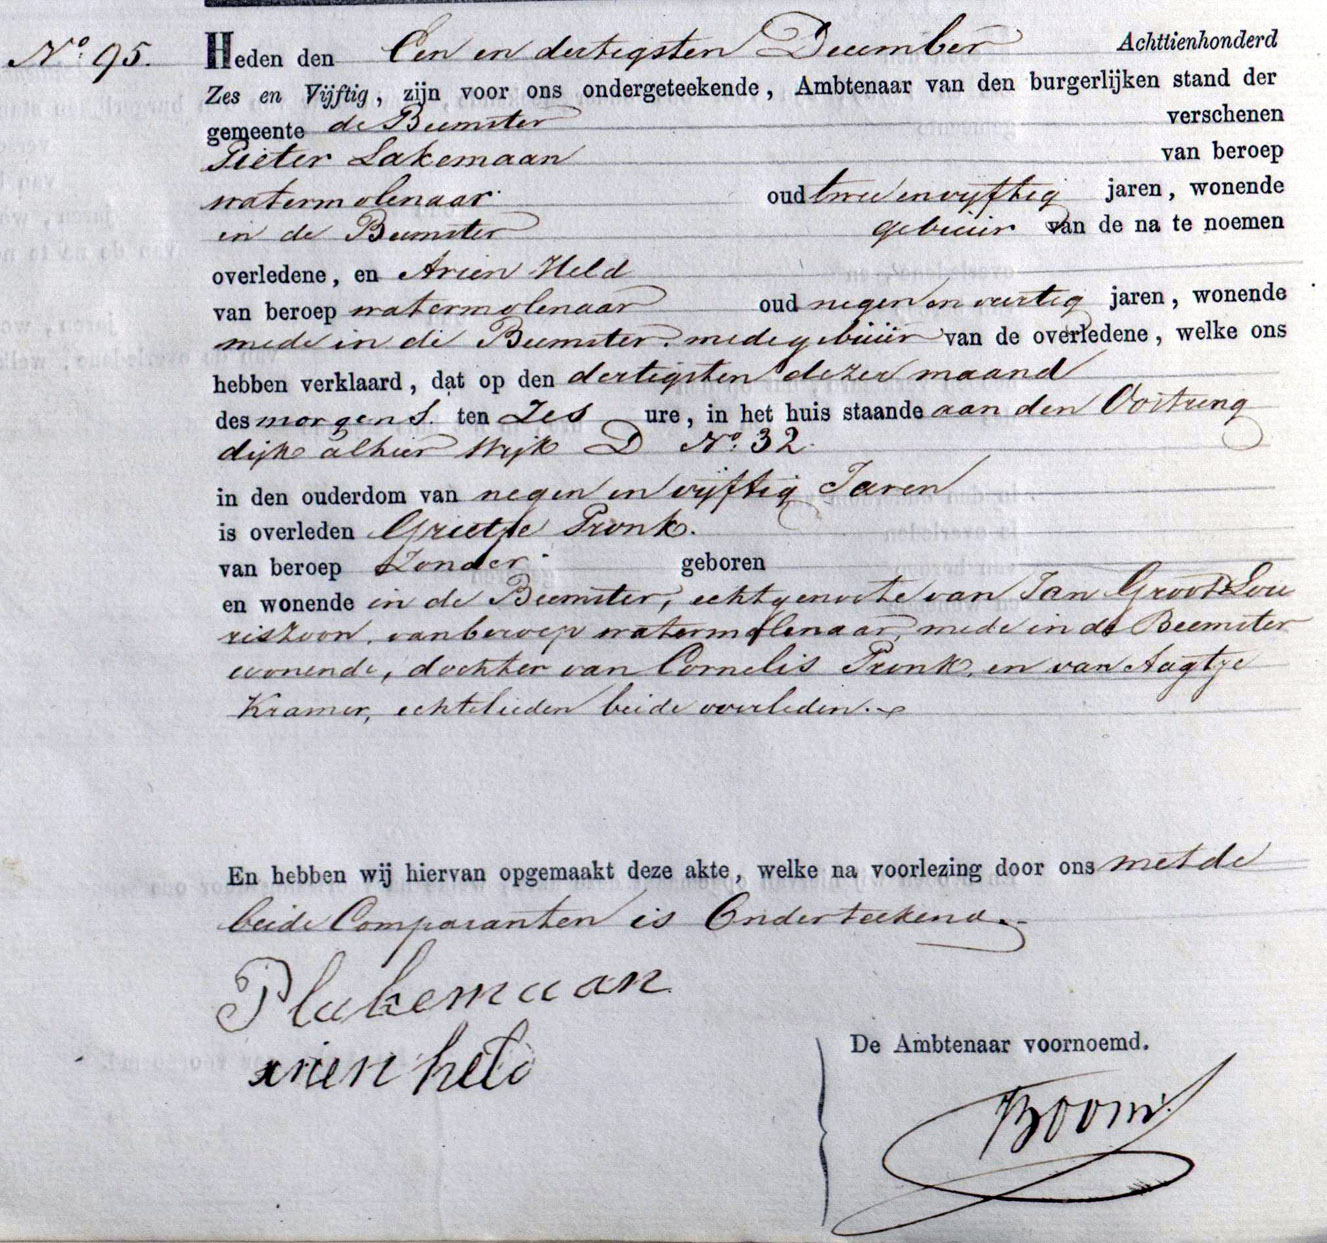 No. 95.
Heden den Een en dertigsten December Achttienhonderd
Zes en Vijftig, zijn voor ons ondergeteekende, Ambtenaar van den burgerlijken stand der
gemeente de Beemster verschenen
Pieter Lakemaan van beroep
watermolenaar oud twee en vijftig jaren, wonende
in de Beemster gebuur van de na te noemen
overledene, en Arien Held
van beroep watermolenaar oud negen en veertig jaren, wonende
mede in de Beemster. mede gebuur van de overledene, welke ons
hebben verklaard, dat op den dertigsten dezer maand
des morgens. ten Zes ure, in het huis staande aan den Oostring
dijk alhier Wijk D No. 32.
in den ouderdom van negen en vijftig Jaren
is overleden Grietje Pronk.
van beroep Zonder geboren
en wonende in de Beemster, echtgenoote van Jan Groot Lou
riszoon, van beroep watermolenaar, mede in de Beemster
wonende, dochter van Cornelis Pronk, en van Aagtje
Kramer, echtelieden beide overleden.
En hebben wij hiervan opgemaakt deze akte, welke na voorlezing door ons met de
beide Comparanten is Onderteekend.
P lakemaan
arien held
De Ambtenaar voornoemd.
Boom